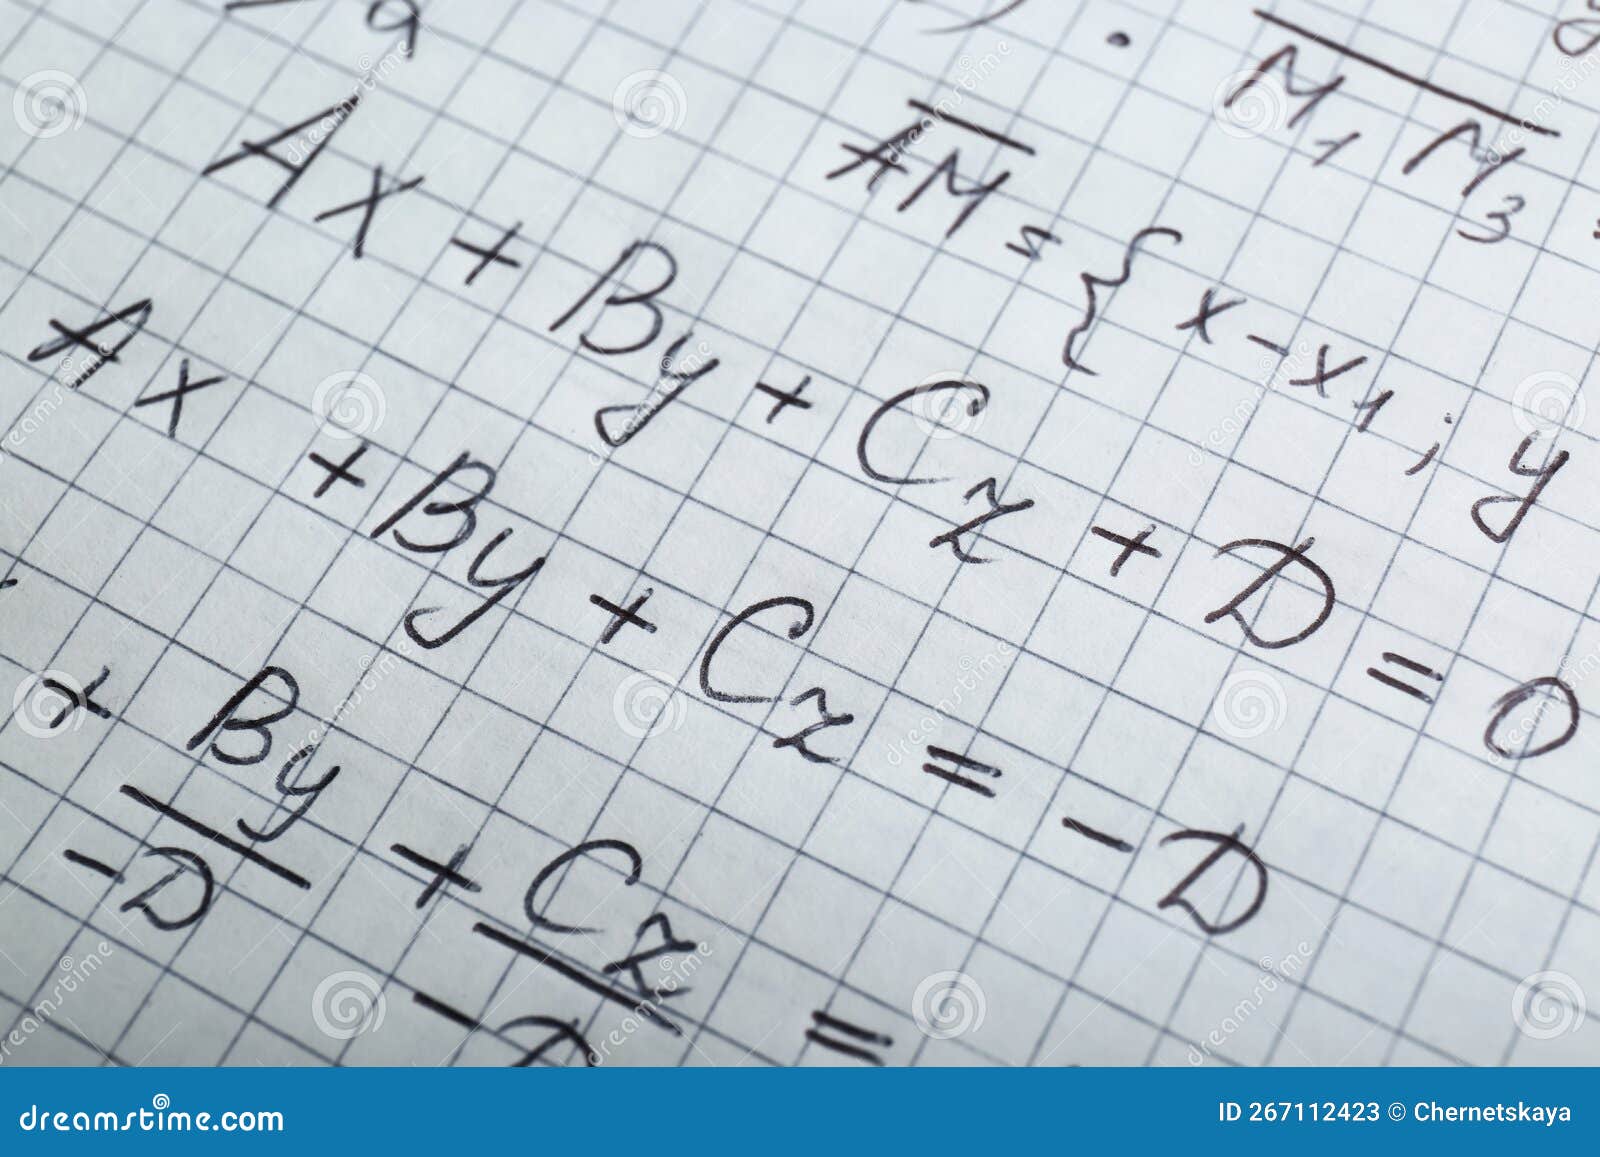 a
M₁M₃
AM = {x-x₁; y
Ax + By + Cz + D = 0
Ax + By + Cz = -D
+ By/-D + Cz/-D =
dreamstime.com
ID 267112423 © Chernetskaya